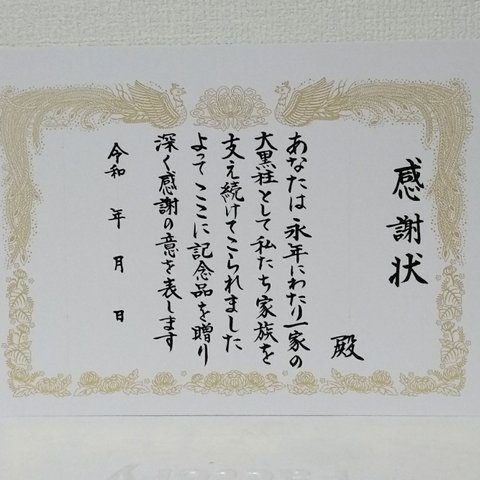 感謝状
殿
あなたは永年にわたり一家の
大黒柱として私たち家族を
支え続けてこられました
よってここに記念品を贈り
深く感謝の意を表します
令和 年 月 日